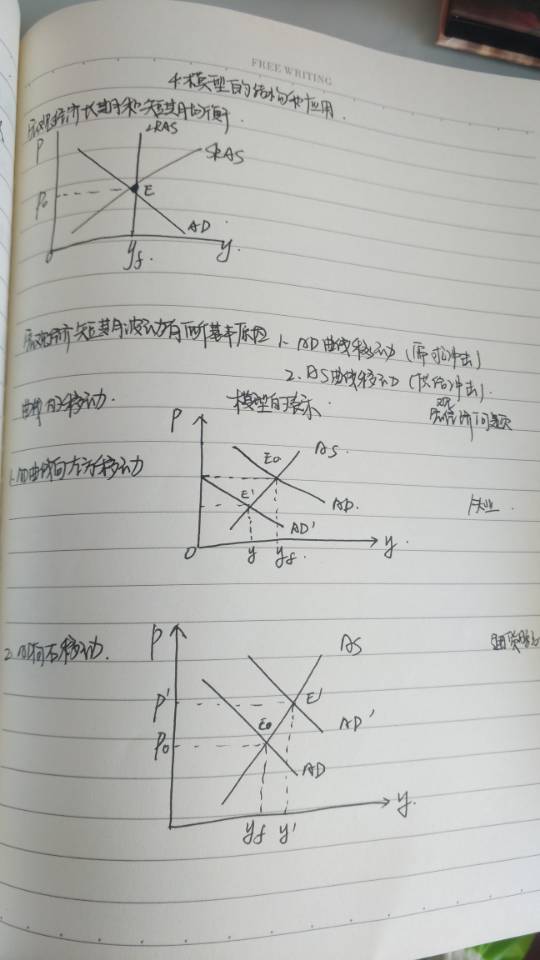 FREE WRITING
4.模型的结构和应用.
宏观经济长期和短期的均衡.
P
LRAS
SRAS
P₀
E
AD
0
y_f.
y.
宏观经济短期波动有两个基本原因 1. AD曲线移动 (需求冲击)
2. AS曲线移动 (供给冲击).
曲线的移动.
模型的演示
宏观经济问题
1. AD曲线向左移动
P
AS
E₀
E'
AD.
AD'
失业
0
y
y_f.
y.
2. AD向右移动.
P
AS
通货膨胀
P'
E'
AD'
P₀
E₀
AD
y_f
y'
y.